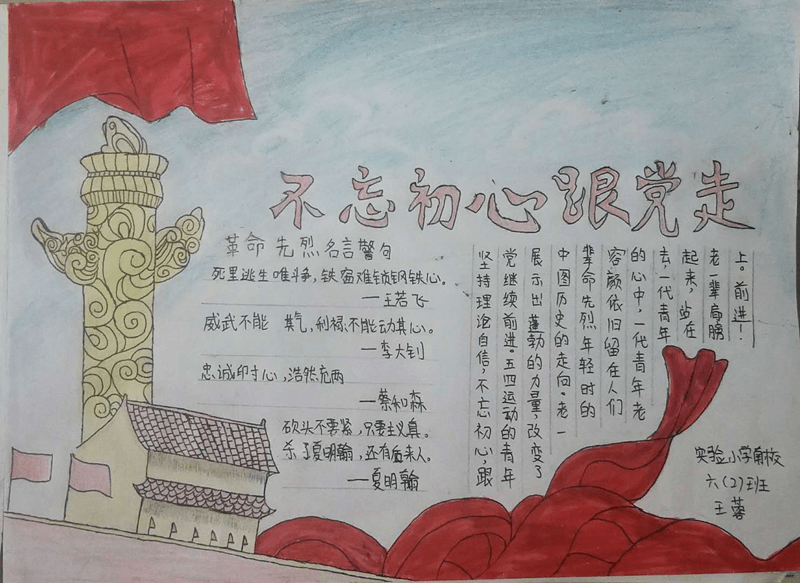 不忘初心跟党走
革命先烈名言警句
死里逃生唯斗争,铁窗难锁钢铁心。
—王若飞
威武不能 其气,利禄不能动其心。
—李大钊
忠诚印寸心,浩然充两
—蔡和森
砍头不要紧,只要主义真。
杀了夏明翰,还有后来人。
—夏明翰
坚持理论自信,不忘初心,跟
党继续前进。五四运动的青年
展示出蓬勃的力量,改变了
中图历史的走向。老一
辈命先烈年轻时的
容颜依旧留在人们
的心中,一代青年老
去,一代青年
起来,站在
老一辈肩膀
上。前进!
实验小学南校
六(2)班
王蓉